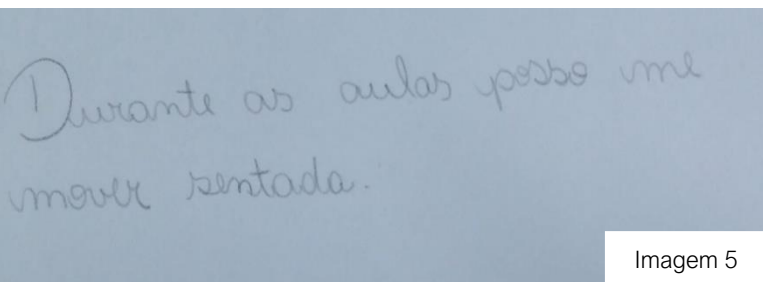 Durante as aulas posso me
mover sentada.
Imagem 5